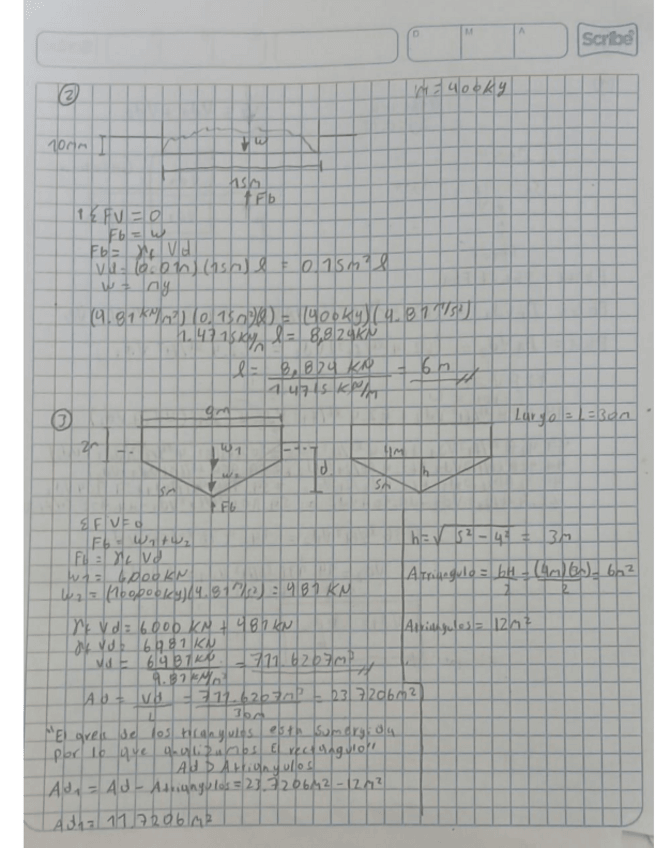 D M A Scribe
② m = 400kg
10mm
W
15m
↑Fb
↑ΣFV = 0
Fb = w
Fb = γL Vd
Vd = (0.01m)(15m) l = 0.15m² l
w = mg
(9.81 KN/m³)(0.15m²)(l) = (400kg)(9.81 m/s²)
1.4715KN/m l = 8,829KN
l = 8,829 KN / 1.4715 KN/m = 6m
③ 8m Largo = L = 30m
2m
w1
w2
d
5m
↑Fb
4m
h
5m
ΣFV=0
Fb = w1 + w2
Fb = γL Vd
w1 = 6000KN
w2 = (100000kg)(9.81 m/s²) = 981 KN
h = √5² - 4² = 3m
Atriangulo = bH/2 = (4m)(3m)/2 = 6m²
Atriangulos = 12m²
γL Vd = 6000 KN + 981KN
γL Vd = 6981KN
Vd = 6981KN / 9.81KN/m³ = 711.6207m³
Ad = Vd / L = 711.6207m³ / 30m = 23.7206m²
"El area de los triangulos esta sumergida
por lo que analizamos El rectangulo"
Ad > Atriangulos
Ad1 = Ad - Atriangulos = 23.7206m² - 12m²
Ad1 = 11.7206m²